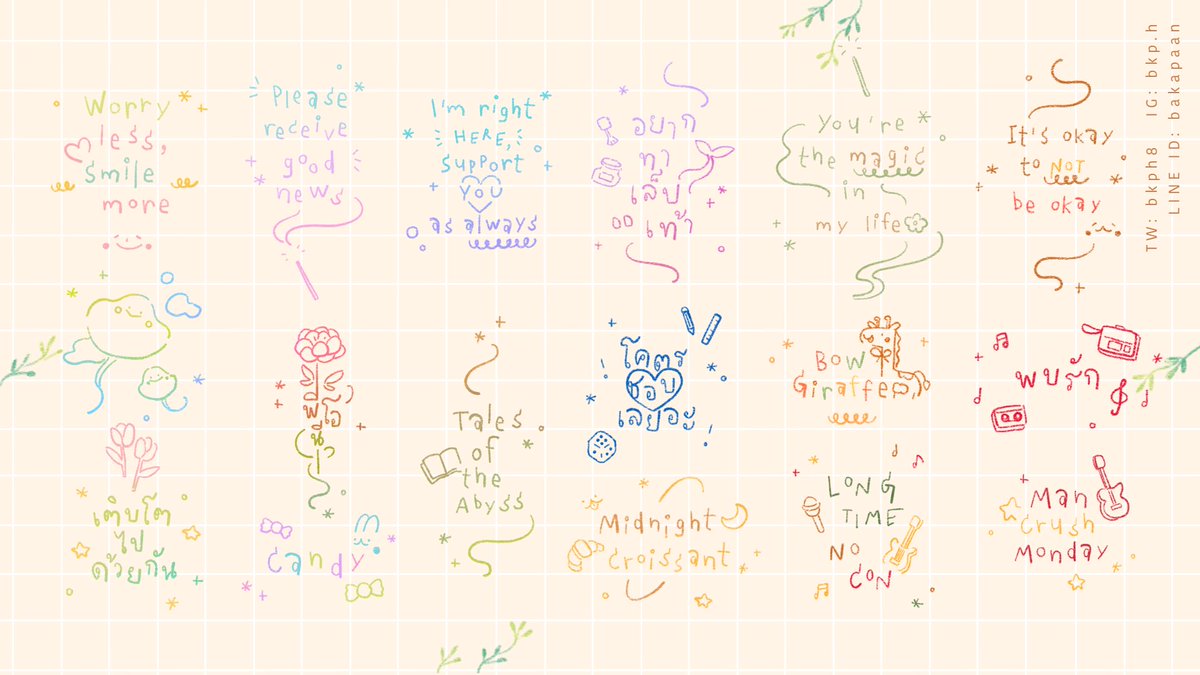 Worry
less,
smile
more
Please
receive
good
news
I'm right
HERE,
support
YOU
as always
อยาก
ทา
เล็บ
เท้า
You're
the magic
in
my life
It's okay
to NOT
be okay
TW: bkph8 IG: bkp.h
LINE ID: bakapaan
พีโอ
นี
Tales
of
the
Abyss
โคตร
ชอบ
เลยอะ
Bow
Giraffe
พบรัก
เติบโต
ไป
ด้วยกัน
Candy
Midnight
Croissant
LONG
TIME
NO
CON
Man
Crush
Monday